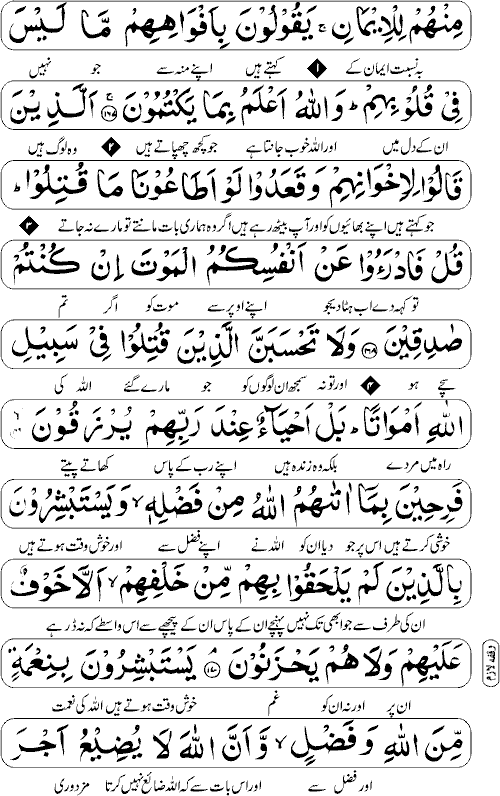 مِنْهُمْ لِلْاِيْمَانِ ۚ يَقُوْلُوْنَ بِاَفْوَاهِهِمْ مَّا لَيْسَ
بہ نسبت ایمان کے ۱ کہتے ہیں اپنے منہ سے جو نہیں
فِيْ قُلُوْبِهِمْ ؕ وَاللّٰهُ اَعْلَمُ بِمَا يَكْتُمُوْنَ ۚ ۱۶۷ اَلَّذِيْنَ
ان کے دل میں اور اللہ خوب جانتا ہے جو کچھ چھپاتے ہیں ۲ وہ لوگ ہیں
قَالُوْا لِاِخْوَانِهِمْ وَقَعَدُوْا لَوْ اَطَاعُوْنَا مَا قُتِلُوْا ؕ
جو کہتے ہیں اپنے بھائیوں کو اور آپ بیٹھ رہے ہیں اگر وہ ہماری بات مانتے تو مارے نہ جاتے ۳
قُلْ فَادْرَءُوْا عَنْ اَنْفُسِكُمُ الْمَوْتَ اِنْ كُنْتُمْ
تو کہہ دے اب ہٹا دیجو اپنے اوپر سے موت کو اگر تم
صٰدِقِيْنَ ۱۶۸ وَلَا تَحْسَبَنَّ الَّذِيْنَ قُتِلُوْا فِيْ سَبِيْلِ
سچے ہو ۴ اور تو نہ سمجھ ان لوگوں کو جو مارے گئے اللہ کی
اللّٰهِ اَمْوَاتًا ؕ بَلْ اَحْيَآءٌ عِنْدَ رَبِّهِمْ يُرْزَقُوْنَ ۙ
راہ میں مردے بلکہ وہ زندہ ہیں اپنے رب کے پاس کھاتے پیتے
فَرِحِيْنَ بِمَآ اٰتٰىهُمُ اللّٰهُ مِنْ فَضْلِهٖ ۙ وَيَسْتَبْشِرُوْنَ
خوشی کرتے ہیں اس پر جو دیا ان کو اللہ نے اپنے فضل سے اور خوش وقت ہوتے ہیں
بِالَّذِيْنَ لَمْ يَلْحَقُوْا بِهِمْ مِّنْ خَلْفِهِمْ ۙ اَلَّا خَوْفٌ
ان کی طرف سے جو ابھی تک نہیں پہنچے ان کے پاس ان کے پیچھے سے اس واسطے کہ نہ ڈر ہے
عَلَيْهِمْ وَلَا هُمْ يَحْزَنُوْنَ ۘ ۱۷۰ يَسْتَبْشِرُوْنَ بِنِعْمَةٍ
وقفہ لازم
ان پر اور نہ ان کو غم خوش وقت ہوتے ہیں اللہ کی نعمت
مِّنَ اللّٰهِ وَفَضْلٍ ۙ وَّاَنَّ اللّٰهَ لَا يُضِيْعُ اَجْرَ
اور فضل سے اور اس بات سے کہ اللہ ضائع نہیں کرتا مزدوری